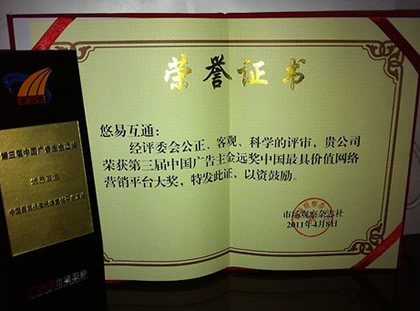 第三届中国广告主金远奖
悠易互通
荣誉证书
悠易互通：
经评委会公正、客观、科学的评审，贵公司
荣获第三届中国广告主金远奖中国最具价值网络
营销平台大奖，特发此证，以资鼓励。
市场观察杂志社
2011年4月8日